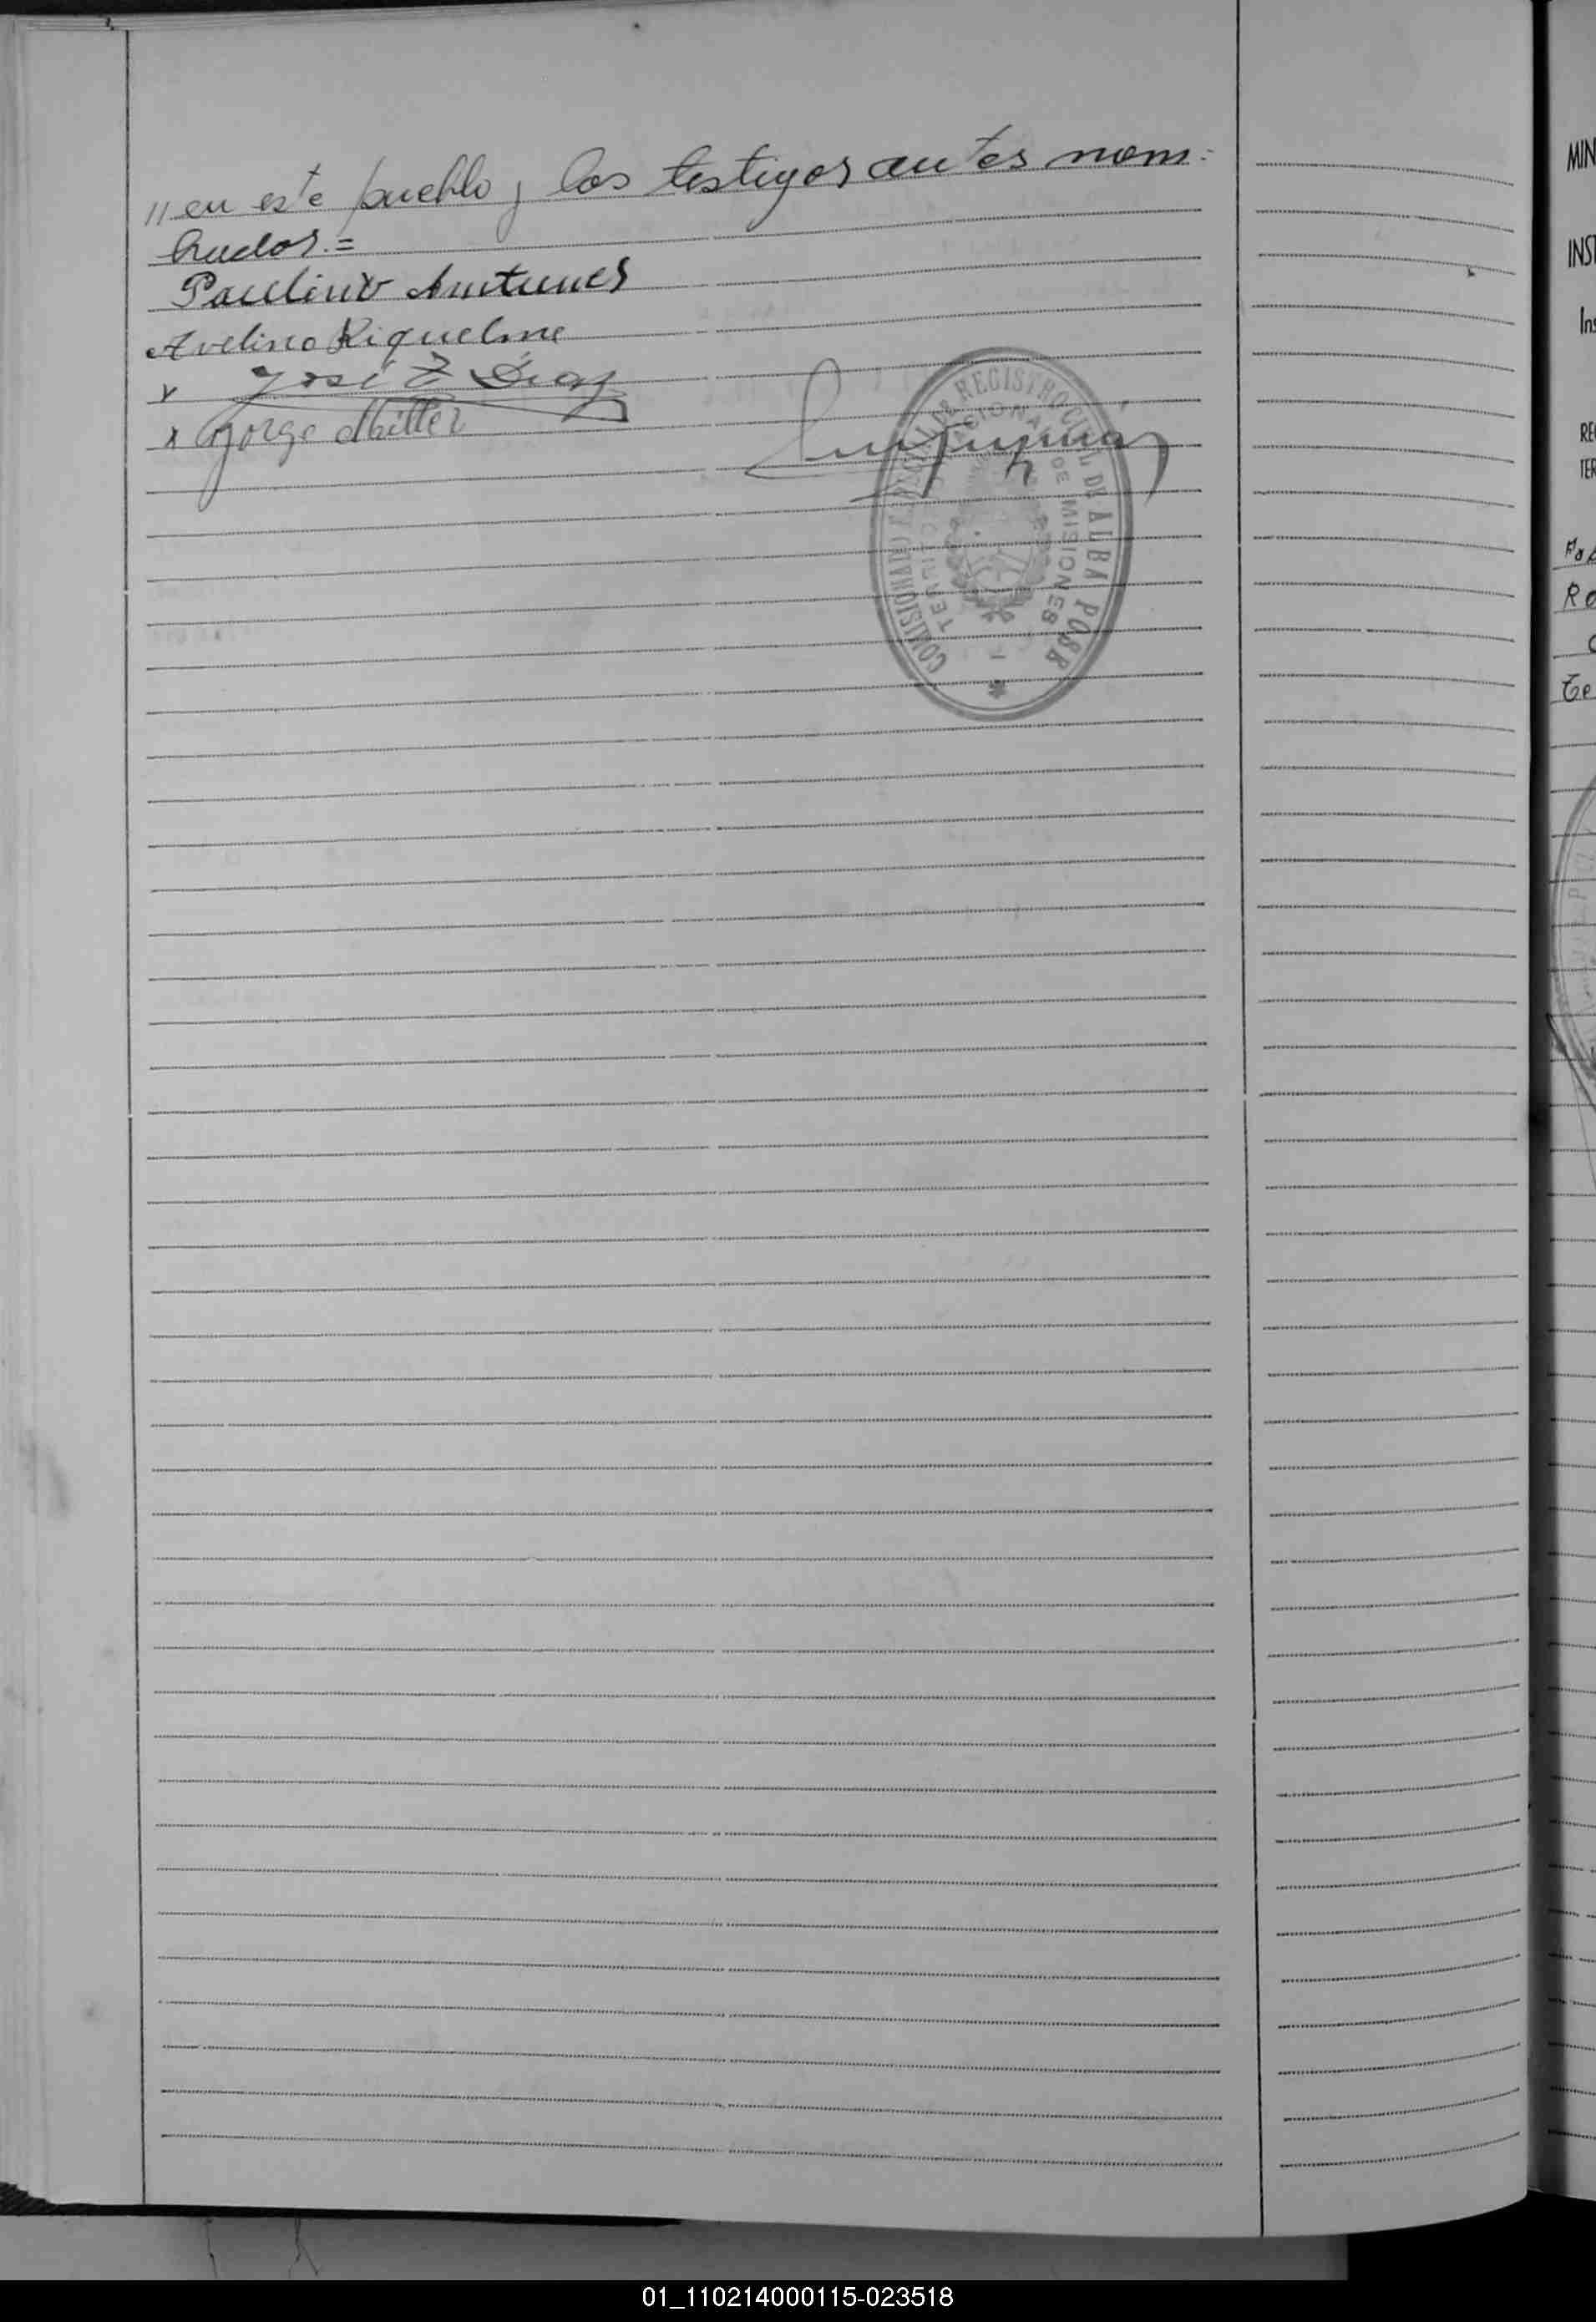 // en este pueblo y los testigos antes nom-
brados.=
Paulino Antunes
Avelino Riquelme
x José Z Diaz
x Jorge Miller
COMISIONADO REGISTRO CIVIL DE ALBA POSSE
TERRITORIO NACIONAL DE MISIONES
MIN
INST
Ins
RE
TER
Ro
Te
01_110214000115-023518